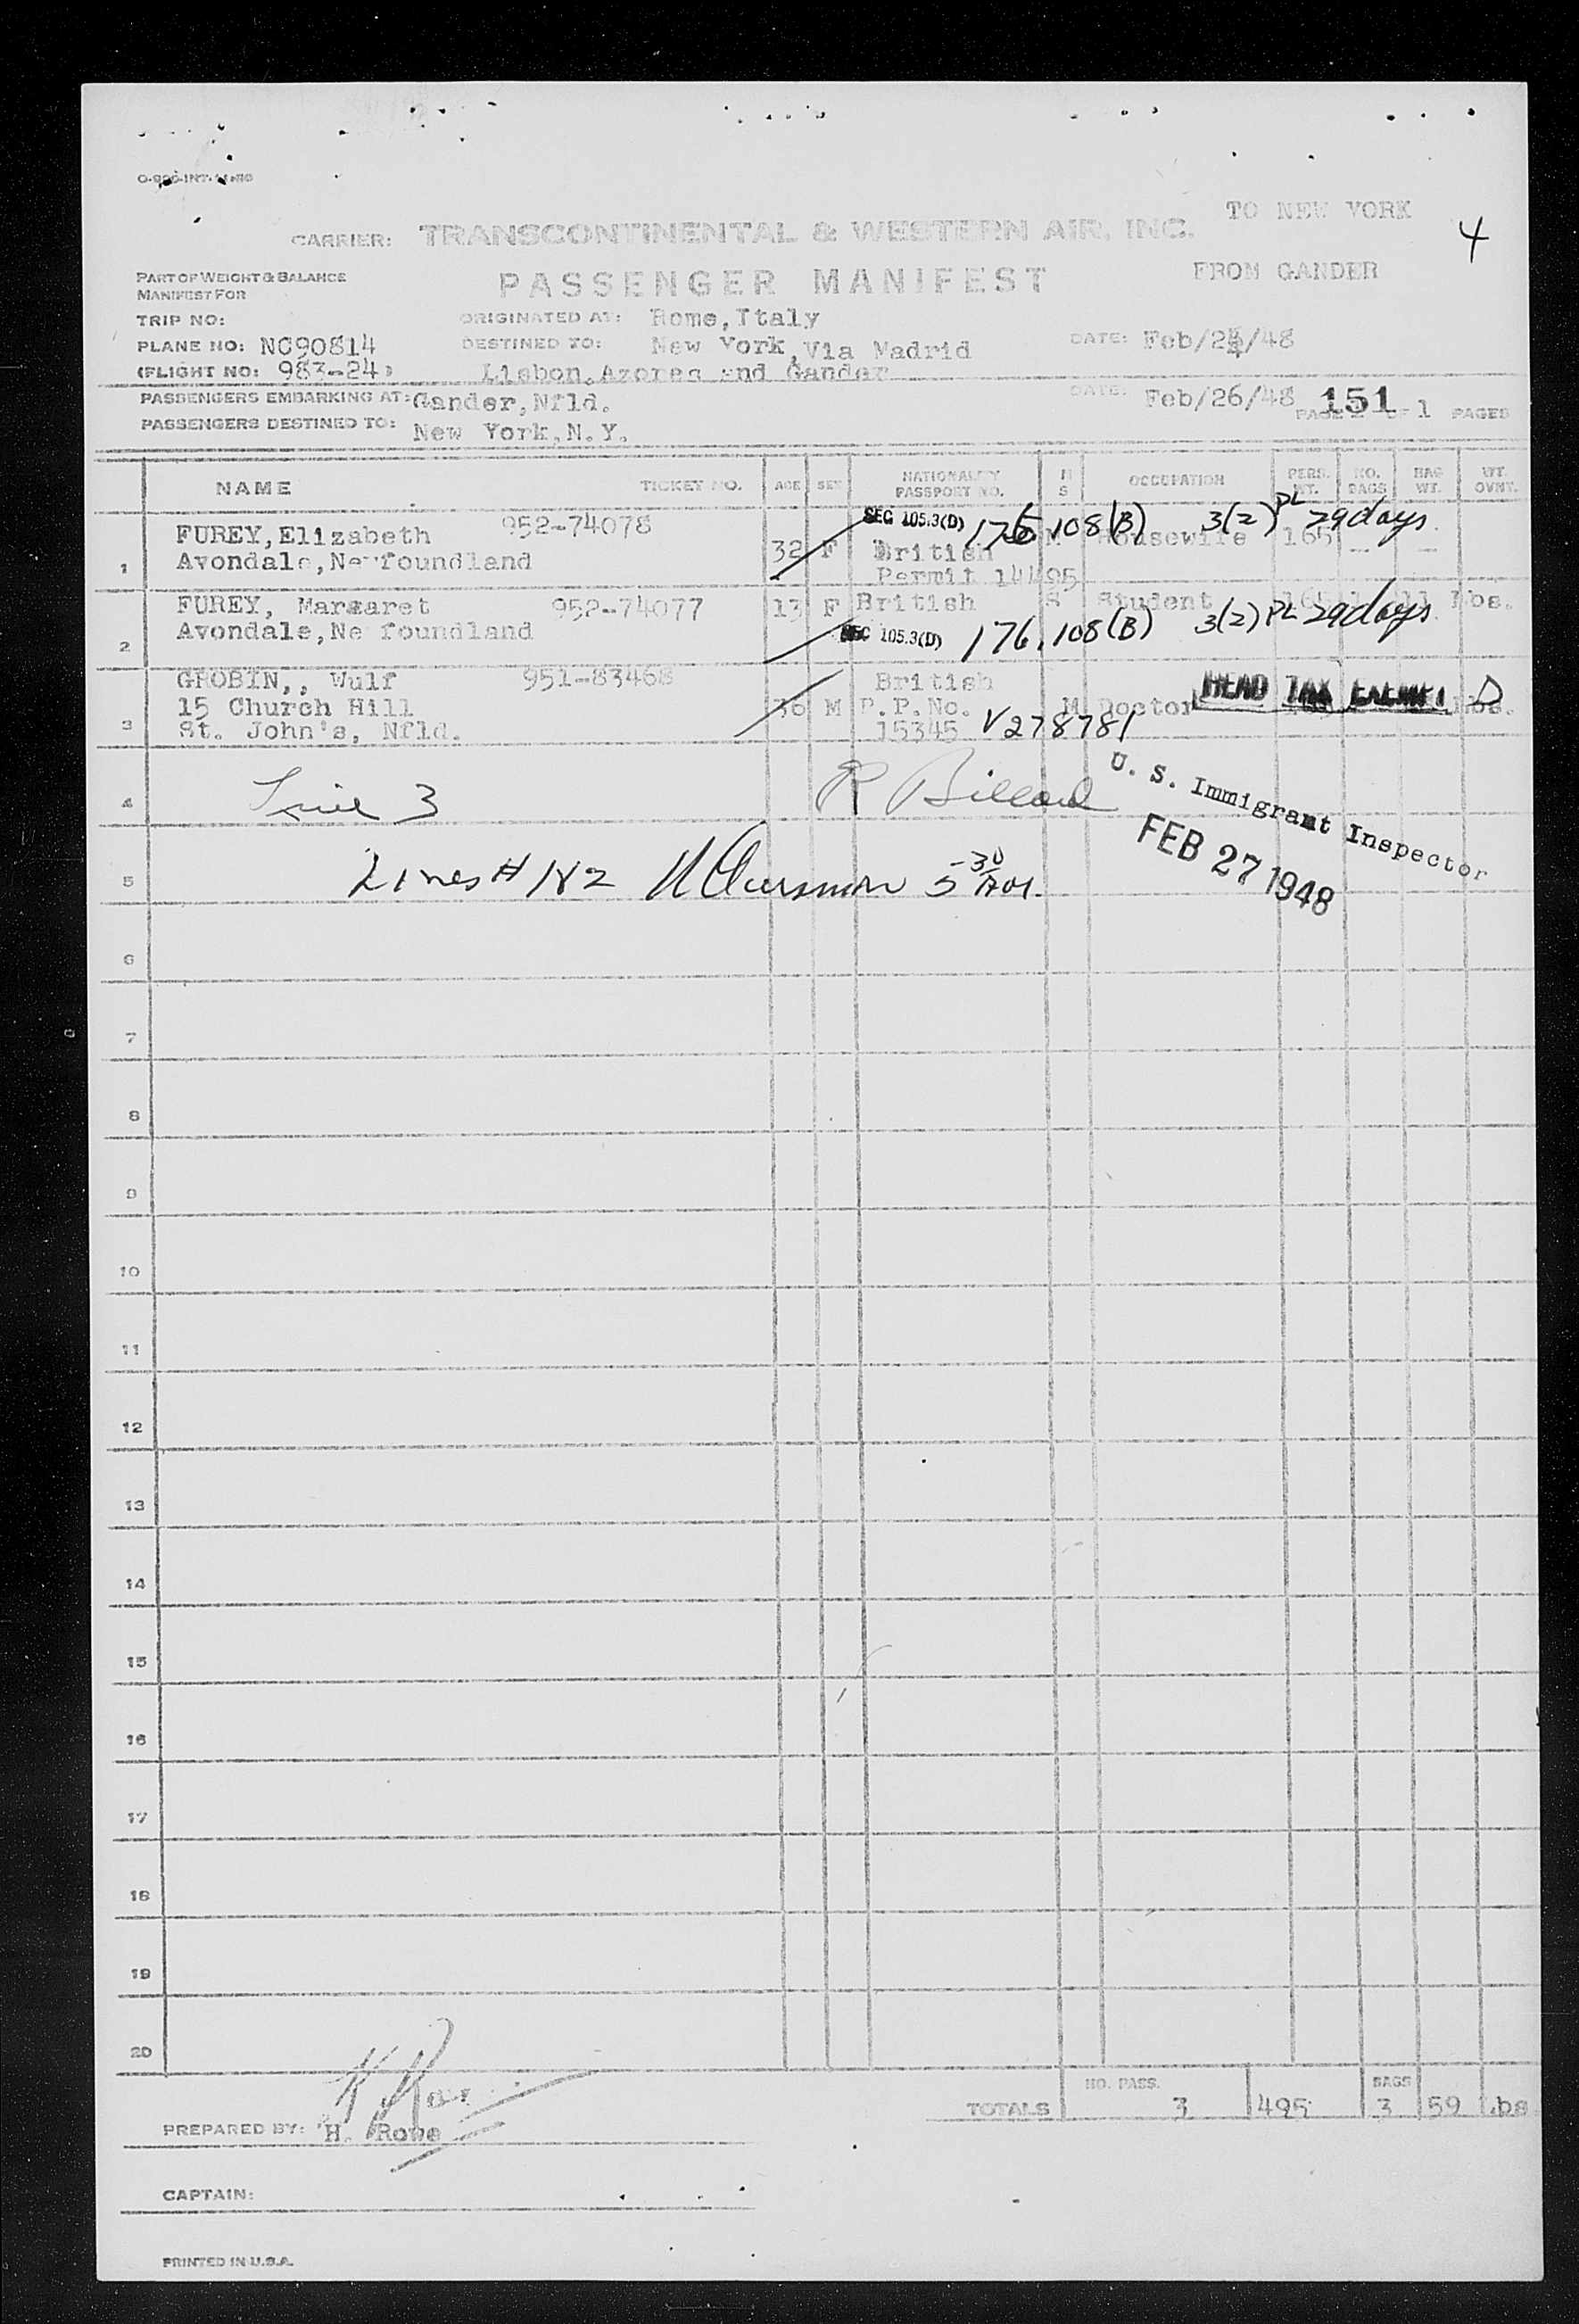 TO NEW YORK
4
CARRIER: TRANSCONTINENTAL & WESTERN AIR, INC.
PART OF WEIGHT & BALANCE
MANIFEST FOR
PASSENGER MANIFEST
FROM GANDER
TRIP NO:
ORIGINATED AT: Rome,Italy
PLANE NO: NC90814
DESTINED TO: New York,Via Madrid
DATE: Feb/24/48
(FLIGHT NO: 983-24)
Lisbon,Azores and Gander
PASSENGERS EMBARKING AT: Gander,Nfld.
DATE: Feb/26/48
PAGE 151 OF 1 PAGES
PASSENGERS DESTINED TO: New York,N.Y.
NAME TICKET NO. AGE SEX NATIONALITY PASSPORT NO. M S OCCUPATION PERS. WT. NO. BAGS BAG WT. WT. OVWT.
SEC 105.3(D) 176.108(B) 3(2) PL 29 days
FUREY,Elizabeth 952-74078
32 F British M Housewife 165 - -
1 Avondale,Newfoundland
Permit 14495
FUREY, Margaret 952-74077 13 F British S Student 165 1 11 Lbs.
Avondale,Newfoundland
2 SEC 105.3(D) 176.108(B) 3(2) PL 29 days
GROBIN,, Wulf 951-83468 British
HEAD TAX EXEMPT D
15 Church Hill 36 M P.P.No. M Doctor 165 Lbs.
3 St. John's, Nfld. 15345 V278781
4 Line 3 R Billard
U. S. Immigrant Inspector
FEB 27 1948
5 Lines # 1 & 2 5-30 AM.
6
7
8
9
10
11
12
13
14
15
16
17
18
19
20
TOTALS NO. PASS. 3 495 BAGS 3 59 Lbs
PREPARED BY: H. Rowe
CAPTAIN:
PRINTED IN U.S.A.